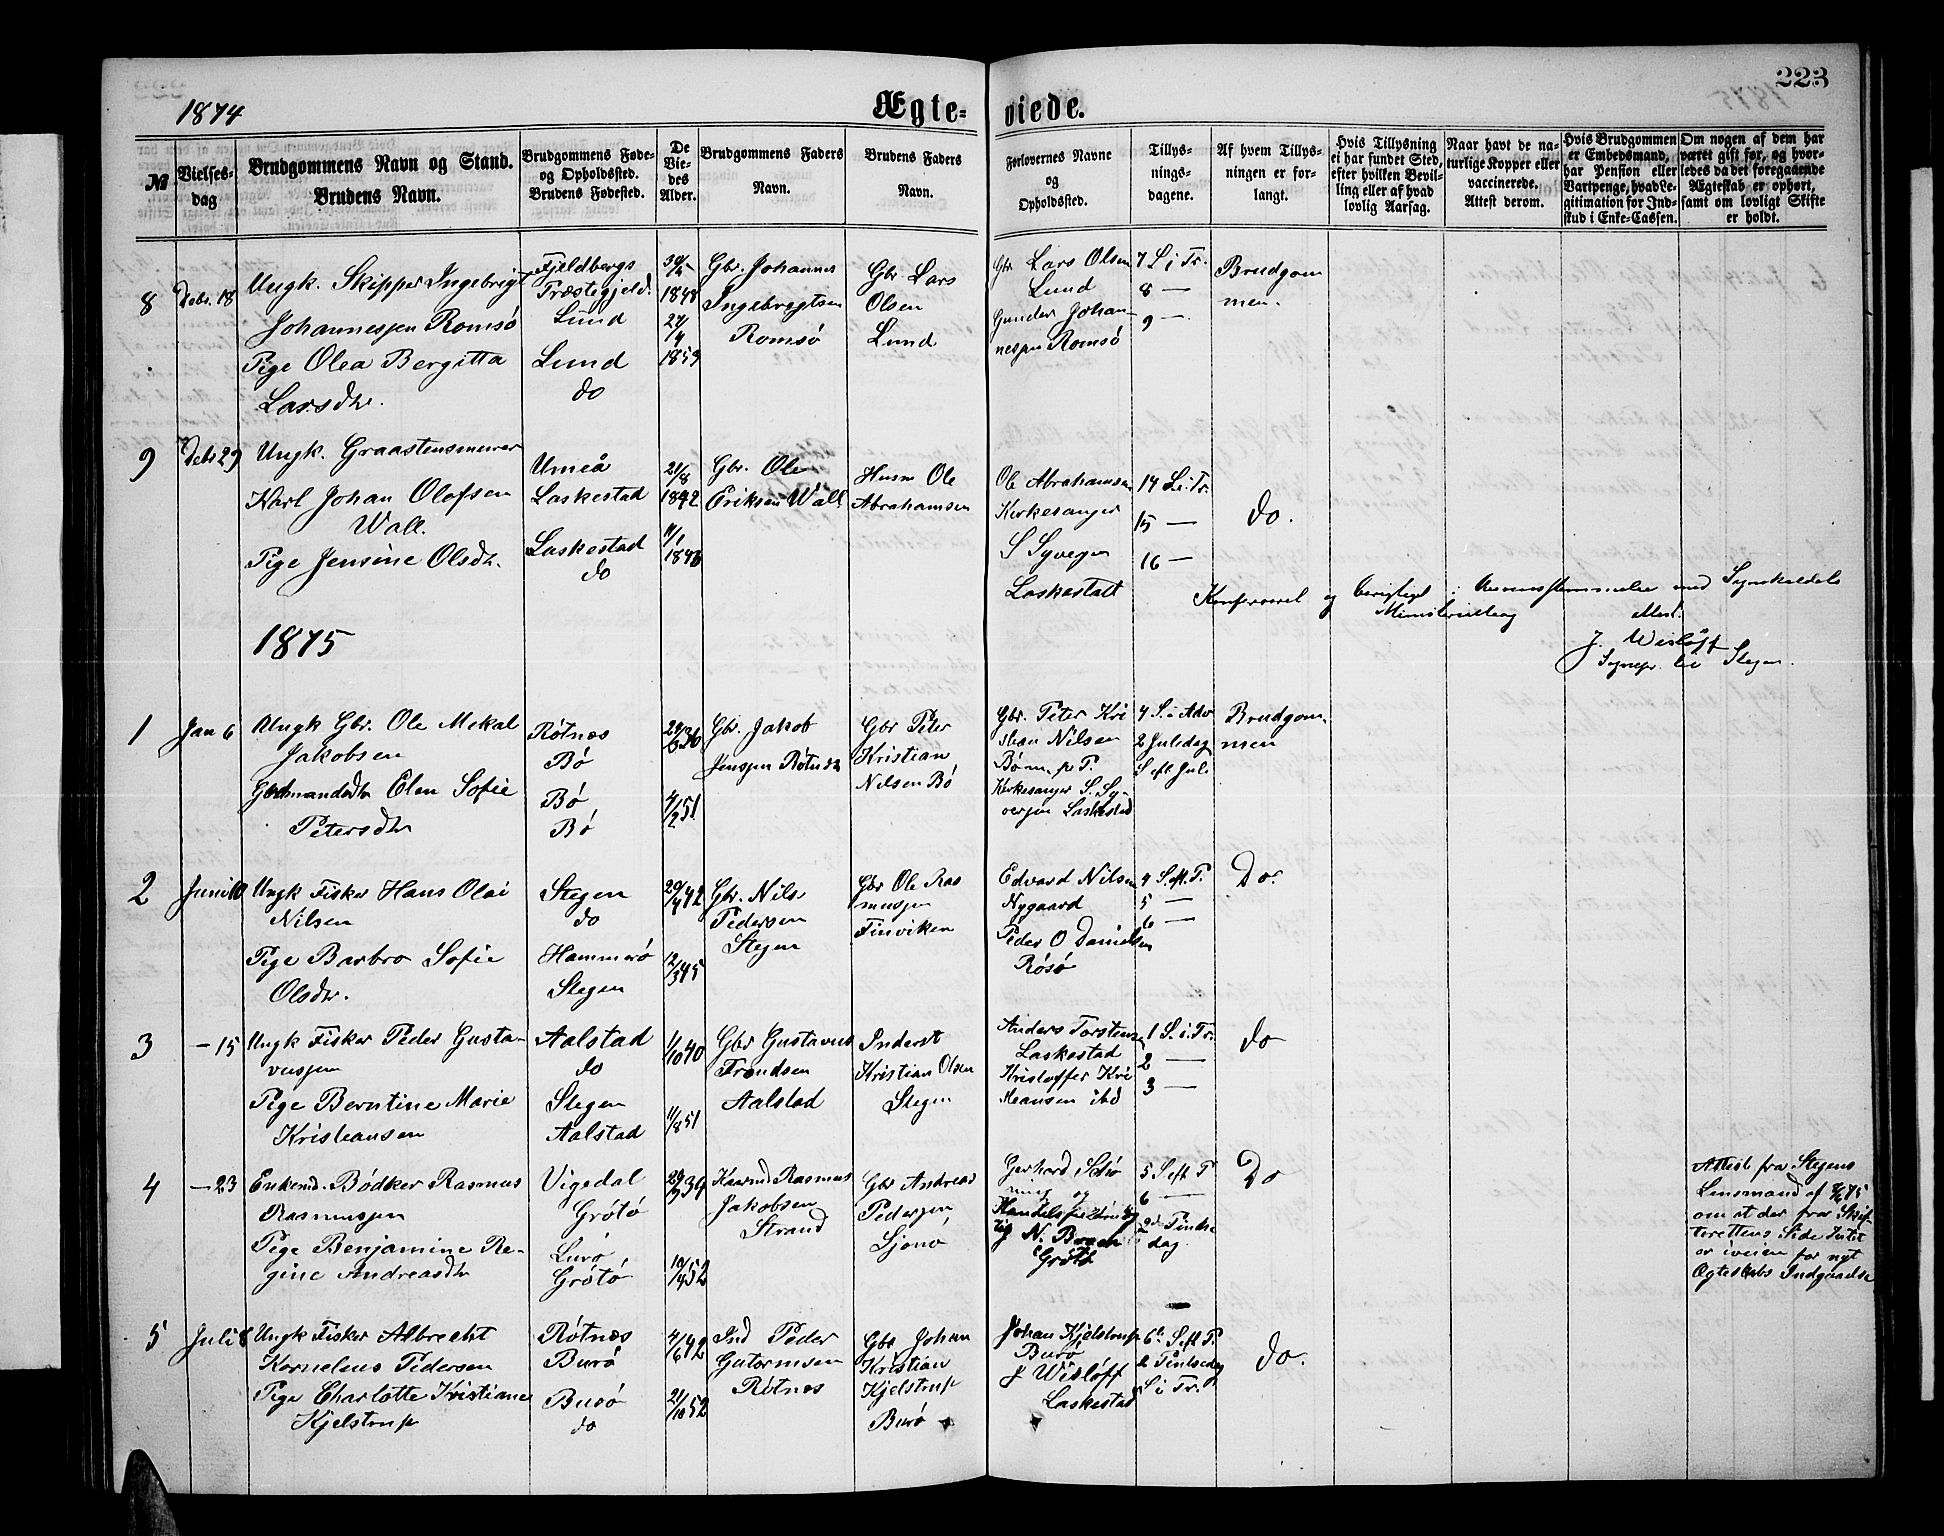 223
1874
Ægteviede.
№
Vielses-
dag
Brudgommens Navn og Stand.
Brudens Navn.
Brudgommens Føde-
og Opholdssted.
Brudens Fødested.
De
Vie-
des
Alder.
Brudgommens Faders
Navn.
Brudens Faders
Navn.
Forlovernes Navne
og
Opholdssted.
Tillys-
nings-
dagene.
Af hvem Tillys-
ningen er for-
langt.
Hvis Tillysning
ei har fundet Sted,
efter hvilken Bevil-
ling eller af hvad
lovlig Aarsag.
Naar havt de na-
turlige Kopper eller
vaccinerede.
Attest derom.
Hvis Brudgommen
er Embedsmand,
har Pension eller
Vartpenge, hvad Le-
gitimation for Ind-
skud i Enke-Cassen.
Om nogen af dem har
været gift før, og hvor-
ledes da det foregaaende
Ægteskab er ophørt,
samt om lovligt Skifte
er holdt.
8
Debr. 18
Ungk. Skipper Ingebrigt
Johannesen Romsö
Pige Olea Bergitta
Larsdtr.
Fjeldbergs
Præstegjeld.
Lund
Lund
do
1848
27/4
1859
Gbr. Johannes
Ingebregtsen
Romsö
Gbr. Lars
Olsen
Lund
Gbr Lars Olsen
Lund
Gunder Johan-
nesen Romsö
7 S. i Tr.
8 —
9 —
Brudgom
men.
9
Debr 29
Ungk. Graastensmurer
Karl Johan Olofsen
Wall.
Pige Jensine Olsdtr.
Umeå
Laskestad
Laskestad
do
21/8
1842
11/1
1846
Gbr. Ole
Eriksen Wall
Husm Ole
Abrahamsen
Ole Abrahamsen
Kirkesanger
S Syversen
Laskestatt
14 S. i Tr.
15 —
16 —
do.
Konfereret og berigtiget i Overensstemmelse med Sognekaldets
Ministerialbog Attest.
J. Wisløff
Sognepr. til Stegen.
1875
1
Jan 6
Ungk Gbr. Ole Mekal
Jakobsen
Gaardmandsdtr Elen Sofie
Petersdtr
Rötnæs
Bö
Bö
Bö
4/2 51
Gbr. Jakob
Jensen Rötnæs
Gbr Peter
Kristian
Nilsen Bö
Gbr. Peter Kri
stian Nilsen
Bö
Kirkesanger S. Sy-
versen Laskestad
4 S. i Adv
2 Juledag
S eft Jul
Brudgom
men
2
Juni 10
Ungk Fisker Hans Olai
Nilsen
Pige Barbro Sofie
Olsdtr.
Stegen
do
Hammerö
Stegen
20/4 42
12/3 45
Gbr. Nils
Pedersen
Stegen
Gbr Ole Ras
musen
Finviken
Edvard Nilsen
Nygaard
Peder O Danielsen
Rösö
4 S. eft. P.
5 —
6 —
Do.
3
— 15
Ungk Fisker Peder Gusta-
vusen
Pige Berntine Marie
Kristiansen
Aalstad
do
Stegen
Aalstad
1/10 40
11/8 51
Gbr Gustavus
Trondsen
Aalstad
Inderst
Kristian Olsen
Stegen
Anders Torstensen
Laskestad
Kristoffer Kri
stiansen ibd
1 S. i. Tr.
2 —
3 —
do
4
— 23
Enkemd. Bödker Rasmus
Rasmusen
Pige Benjamine Re-
gine Andreasdtr
Vigedal
Grötö
Lurö
Grötö
29/9 39
10/4 52
Kaarmd Rasmus
Jakobsen
Strand
Gbr Andreas
Pedersen
Sjonö
Gerhard Schö
ning og
N.
Grötö
5 S eft P
6 —
2den Pintse
dag.
Do
Attest fra Stegens
Lensmand af 75
om at der fra Skif-
terettens Side Intet
er iveien for nyt
Ægteskabs Indgaaelse
5
Juli 8
Ungk Fisker Albrecht
Kornelius Pedersen
Pige Charlotte Kristiane
Kjelstrup
Rötnæs
Burö
Burö
do
4/6 42
21/10 52
Ind Peder
Gutormsen
Rötnes
Gbr Johan
Kristian
Kjelstrup
Burö
Johan Kjelstrup
Burö
J Wislöff
Laskestad
6te S eft P.
2 Pintsedag
S i Tr.
do.